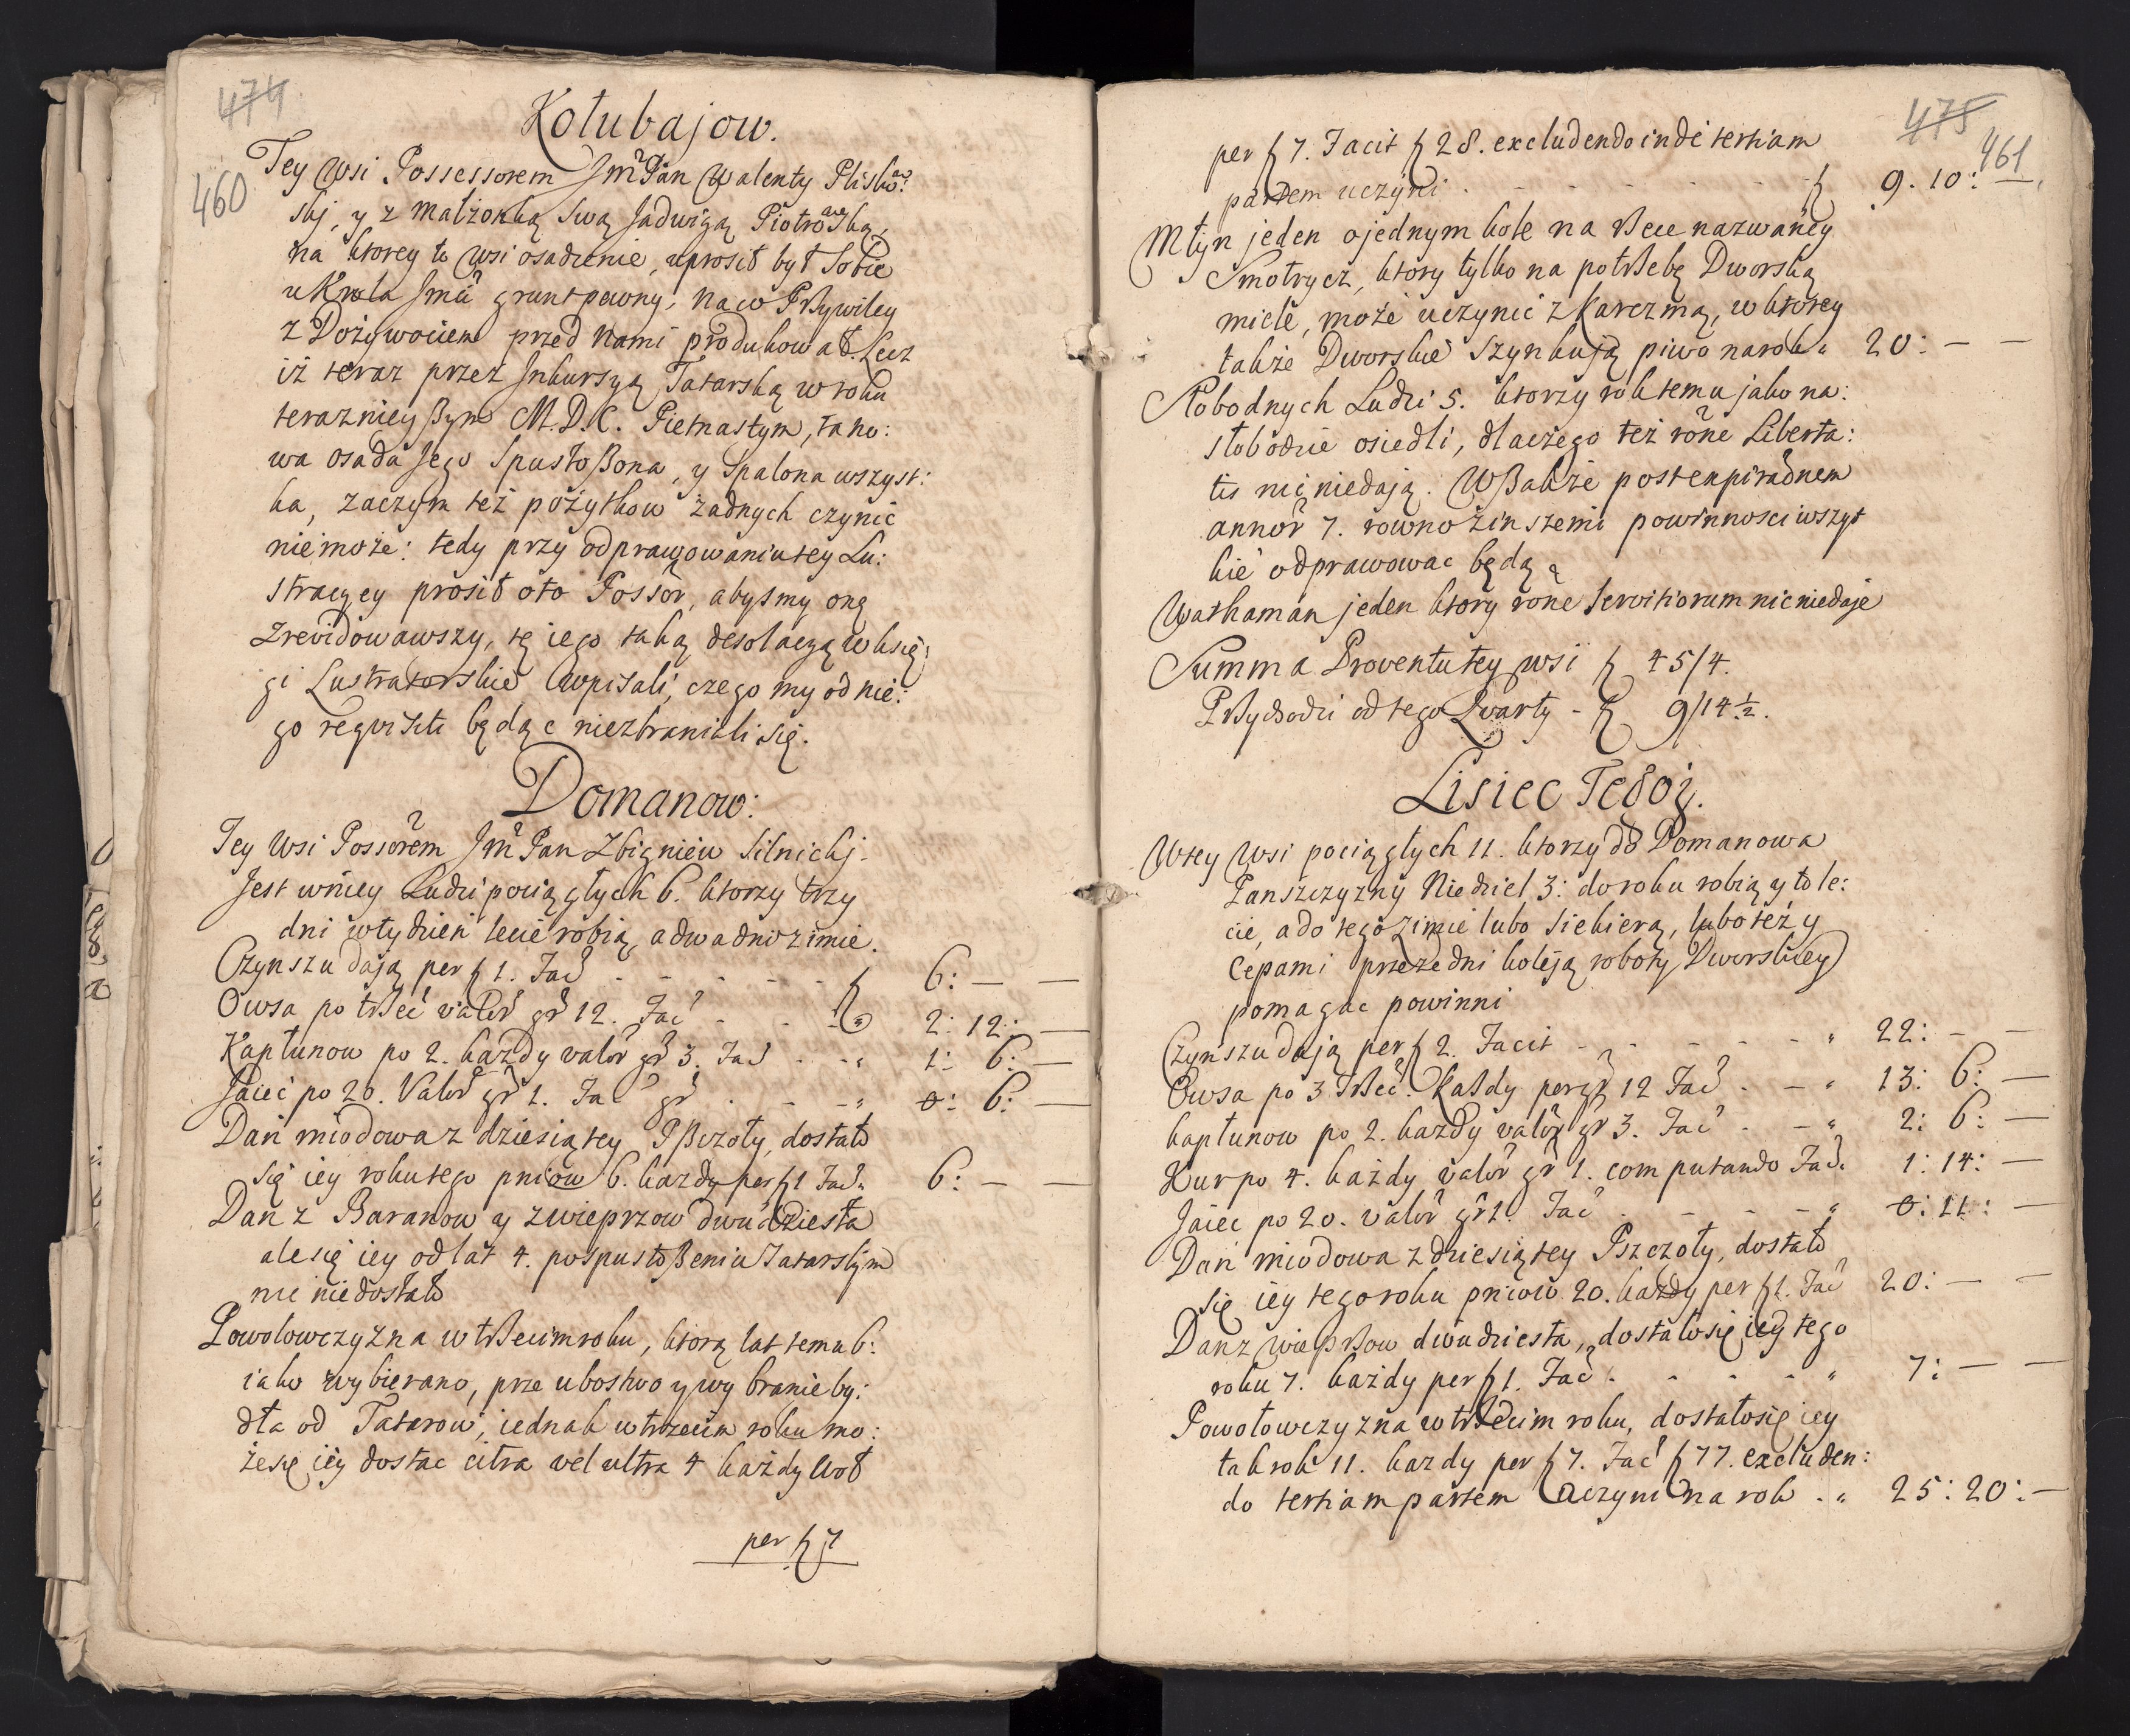 474
460
Kołubajow.
Tey Wsi Possessorem Jm̃ Pan Walenty Plisko:
skj, y z Małżonką Swą Jadwigą Piotrowską,
na ktorey to wsi osadzenie, uprosił był Sobie
u Krola Jmci grunt pewny, na co Przywiley
z Dożywociem przed Nami produkował. Lecz
iż teraz przez Jnkursyą Tatarską w roku
terazniejszym M.D.C. Pietnastym, ta no:
wa osada Jego Spustoszona, y Spalona wszyst:
ka, zaczym też pożytkow żadnych czynić
niemoże: tedy przy odprawowaniu tey Lu:
stracyey prosił oto Possor, abysmy oną
Zrewidowawszy, tę iego taką desolacyą w księ:
gi Lustratorskie wpisali, czego my od nie:
go requisiti będąc niezbraniali się.
Domanow:
Tey Wsi Possorem Jm̃ Pan Zbigniew Silnickj.
Jest wniey Ludzi pociągłych 6. ktorzy trzy
dni w tydzień lecie robią, a dwa dni zimie.
Czynszu dają per ƒ 1. Fac̃ - - - - - ƒ 6: — —
Owsa po trzeć valor gr 12. Fac̃ - - - " 2: 12: —
Kapłunow po 2. każdy valor gr 3. Fac̃ - - " 1: 6: —
Jaiec po 20. Valor gr 1. Fac̃ gr - - - " 0: 6: —
Dań miodowa z dziesiątey Pszczoły, dostało
się iey roku tego pniow 6. każdy per ƒ 1 Fac̃ " 6: — —
Dań z Baranow y z wieprzow dwudziesta
ale się iey od lat 4. po spustoszeniu Tatarskim
nic niedostało
Powołowczyzna w trzecim roku, ktorą lat temu 6:
iako wybierano, prze ubostwo y wybranie by:
dła od Tatarow, iednak w trzecim roku mo:
że się iey dostac citra vel ultra 4 każdy woł
per ƒ 7
475
461
per ƒ 7. Facit ƒ 28. excludendo inde tertiam
partem uczyni - - - - - - ƒ 9. 10: —
Młyn jeden o jednym kole na Rzece nazwaney
Smotrycz, ktory tylko na potrzebę Dworską
miele, może uczynic z Karczmą, w ktorey
także Dworskie Szynkują piwo na rok " 20: — —
Słobodnych Ludzi 5. ktorzy rok temu jako na:
słobodzie osiedli, dlaczego też rõne Liberta:
tis nic niedają. Wszakże post expiraõnem
annor̃ 7. rowno zinszemi powinnosci wszyt
kie odprawowac będą
Wathaman jeden ktory rõne Servitiorum nic niedaje
Summa Proventu tey wsi ƒ 45/4.
Przychodzi od tego Kwarty - ƒ 9/14½.
Lisiec Tegoż.
W tey Wsi pociągłych 11. ktorzy do Domanowa
Panszczyzny Niedziel 3: do roku robią y to le:
cie, a do tego zimie lubo Siekierą, lubo też y
Cepami przeze dni koleją roboty Dworskiey
pomagac powinni
Czynszu dają per ƒ 2. Facit - - - - - " 22: — —
Owsa po 3 Trzeć. Każdy per gr 12 Fac̃ - - " 13: 6: —
kapłunow po 2. każdy valor gr 3. Fac̃ - - " 2: 6: —
Kur po 4. każdy valor gr 1. computando Fac̃ " 1: 14: —
Jaiec po 20. valor gr 1. Fac̃ - - - - " 0: 11: —
Dań miodowa z dziesiątey Pszczoły, dostało
się iey tego roku pniow 20. każdy per ƒ 1. Fac̃ 20: — —
Dań z wieprzow dwudziesta, dostało się iey tego
roku 7. każdy per ƒ 1. Fac̃ - - - - " 7: — —
Powołowczyzna w trzecim roku, dostało się iey
tak rok 11. każdy per ƒ 7. Fac̃ ƒ 77. excluden:
do tertiam partem uczyni na rok - " 25: 20: —